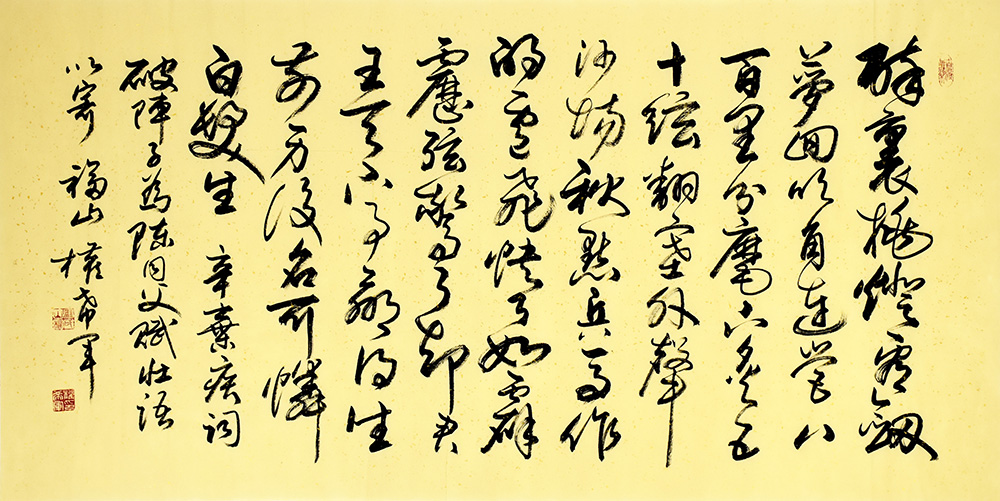 醉裏挑燈看劔
夢回吹角連營八
百里分麾下炙五
十絃翻塞外聲
沙場秋點兵馬作
的盧飛快弓如霹
靂弦驚了却君
王天下事贏得生
前身後名可憐
白髮生 辛棄疾詞
破陣子為陳同父賦壯語
以寄 福山權希軍